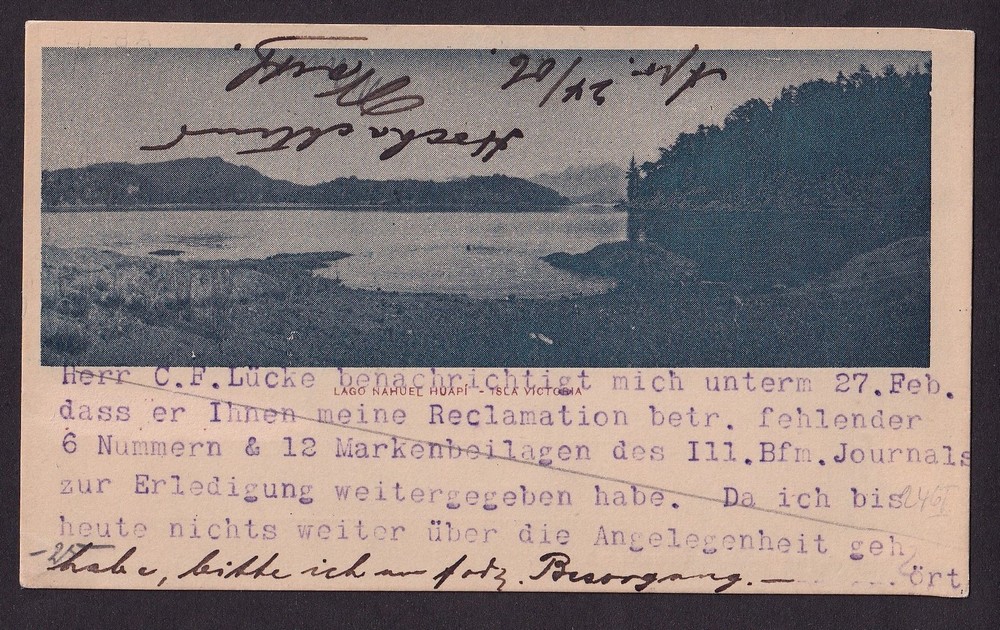 Herr C.F.Lücke benachrichtigt mich unterm 27.Feb.
LAGO NAHUEL HUAPÍ - ISLA VICTORIA
dass er Ihnen meine Reclamation betr. fehlender
6 Nummern & 12 Markenbeilagen des Ill.Bfm.Journals
zur Erledigung weitergegeben habe. Da ich bis
heute nichts weiter über die Angelegenheit geh
ört
habe, bitte ich um fodz. Besorgung. —
Hochachtend
Apr. 24/06